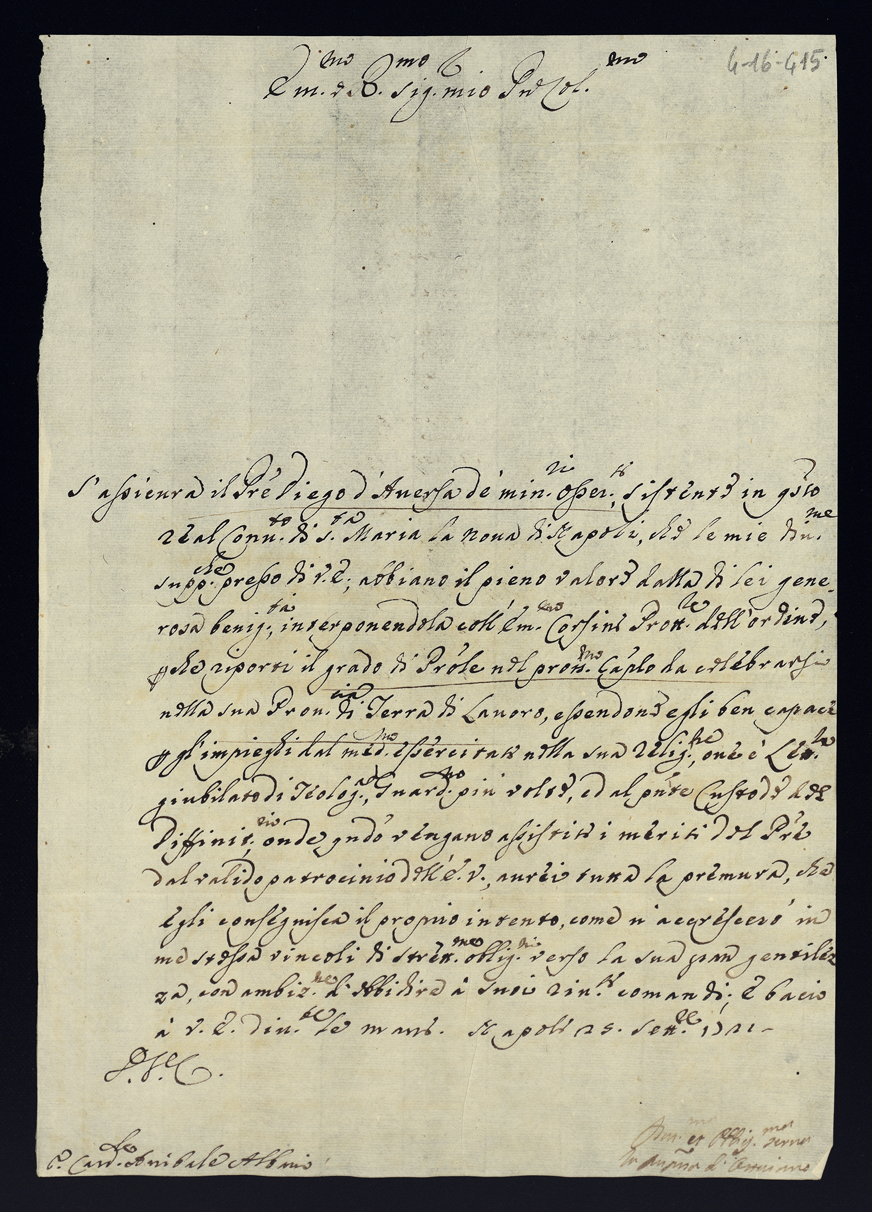 4-16-415
Em.mo e R.mo Sig. mio P.ne Col.mo
S'assicura il Pre Diego d'Aversa de min. Osser.ti, sistente in gsto
real Conu.to di S.ta Maria la Noua di Napoli, che le mie diu.me
supp.che presso di V.E., abbiano il pieno valore dalla di lei gene-
rosa benig.tà, interponendola coll'Em.mo Corsini Prott.re dell'ordine,
che riporti il grado di Prõle nel pross.mo Caplo da celebrarsi
nella sua Prou.cia di Terra di Lauoro, essendone egli ben capace
gl'impieghi dal med.mo essercitati nella sua Relig.ne, oue è Lett.re
giubilato di Teolog.a, Guard.no più volte, ed al pnte Custode del
Diffinit.rio, onde qndo vengano assistiti i meriti del Pre
dal valido patrocinio dell'E.V., aurei tutta la premura, che
egli conseguisca il proprio intento, come n'accrescerò in
me stessa vincoli di strett.me oblig.ni verso la sua gran gentilez-
za, con ambiz.ne d'obbidire à suoi riu.ti comandi; e bacio
à V.E. diu.te le mani. Napoli 23. Sett.re 1721-
P.V.E.
S. Card.le Anibale Albani
et Oblig.ma serua
d'